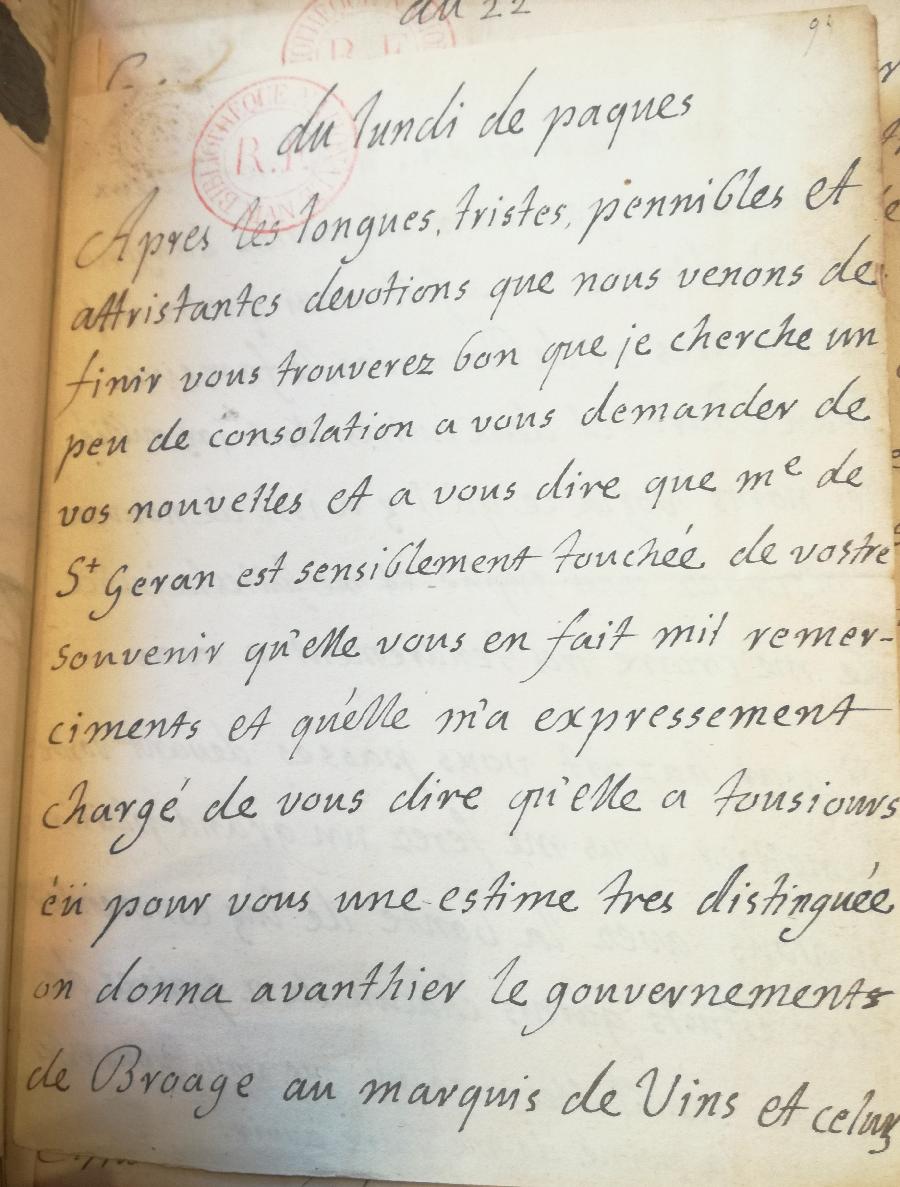 du 22
9
BIBLIOTHEQUE NATIONALE
R.F.
du lundi de paques
Apres les longues, tristes, pennibles et
attristantes devotions que nous venons de
finir vous trouverez bon que je cherche un
peu de consolation a vous demander de
vos nouvelles et a vous dire que me de
St Geran est sensiblement touchée de vostre
souvenir qu'elle vous en fait mil remer-
ciments et qu'elle m'a expressement
chargé de vous dire qu'elle a tousiours
éü pour vous une estime tres distinguée
on donna avanthier le gouvernements
de Broage au marquis de Vins et celuy